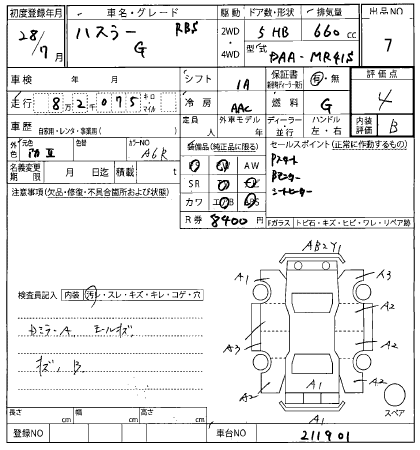 初度登録年月 車名・グレード 駆動 ドア数・形状 排気量 出品NO
28/7月 ハスラー RBS 2WD 5 HB 660cc 7
G 4WD 型式 DAA-MR41S
車検 年 月 シフト IA 保証書 有・無 評価点
走行 8万2千075 キロ・マイル 冷房 AAC 燃料 G 4
車歴 自家用・レンタ・事業用( ) 定員 人 外車モデル 年 ディーラー・並行 ハンドル 左・右 内装評価 B
外色 元色 色替 カラーNO A6R 装備品(純正品に限る) セールスポイント(正常に作動するもの)
名義変更期限 月 日迄 積載 t AW Pスタート
注意事項(欠品・修復・不具合箇所および状態) SR シートヒーター
カワ エアB ABS
R券 8400円 Fガラス トビ石・キズ・ヒビ・ワレ・リペア跡
AB2Y1
A1 A3
検査員記入 内装 汚れ・スレ・キズ・キレ・コゲ・穴
A2
A3 A2
キズ、B
A2 A1 A2
スペア
長さ cm 幅 cm 高さ cm A1
登録NO 車台NO 211901